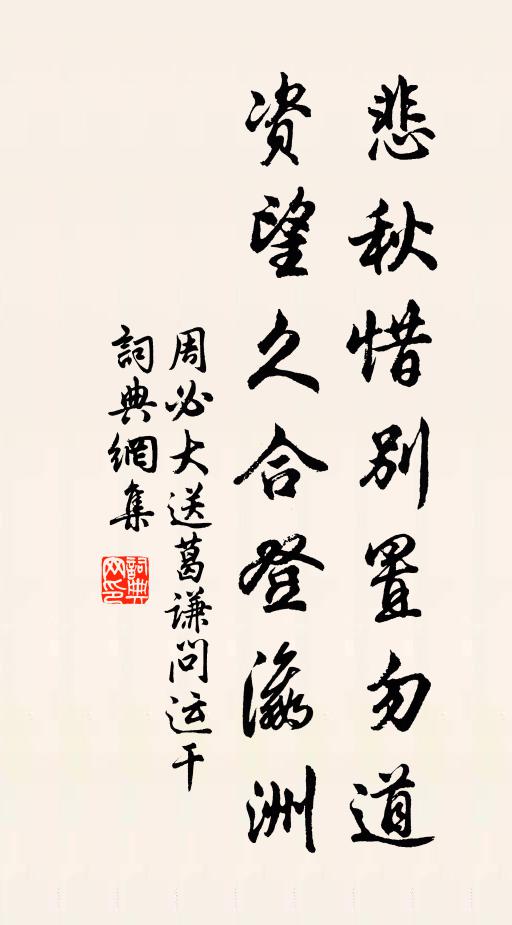 悲秋惜别置勿道
资望久合登瀛洲
周必大送葛谦问运干
詞典網集
詞典網印